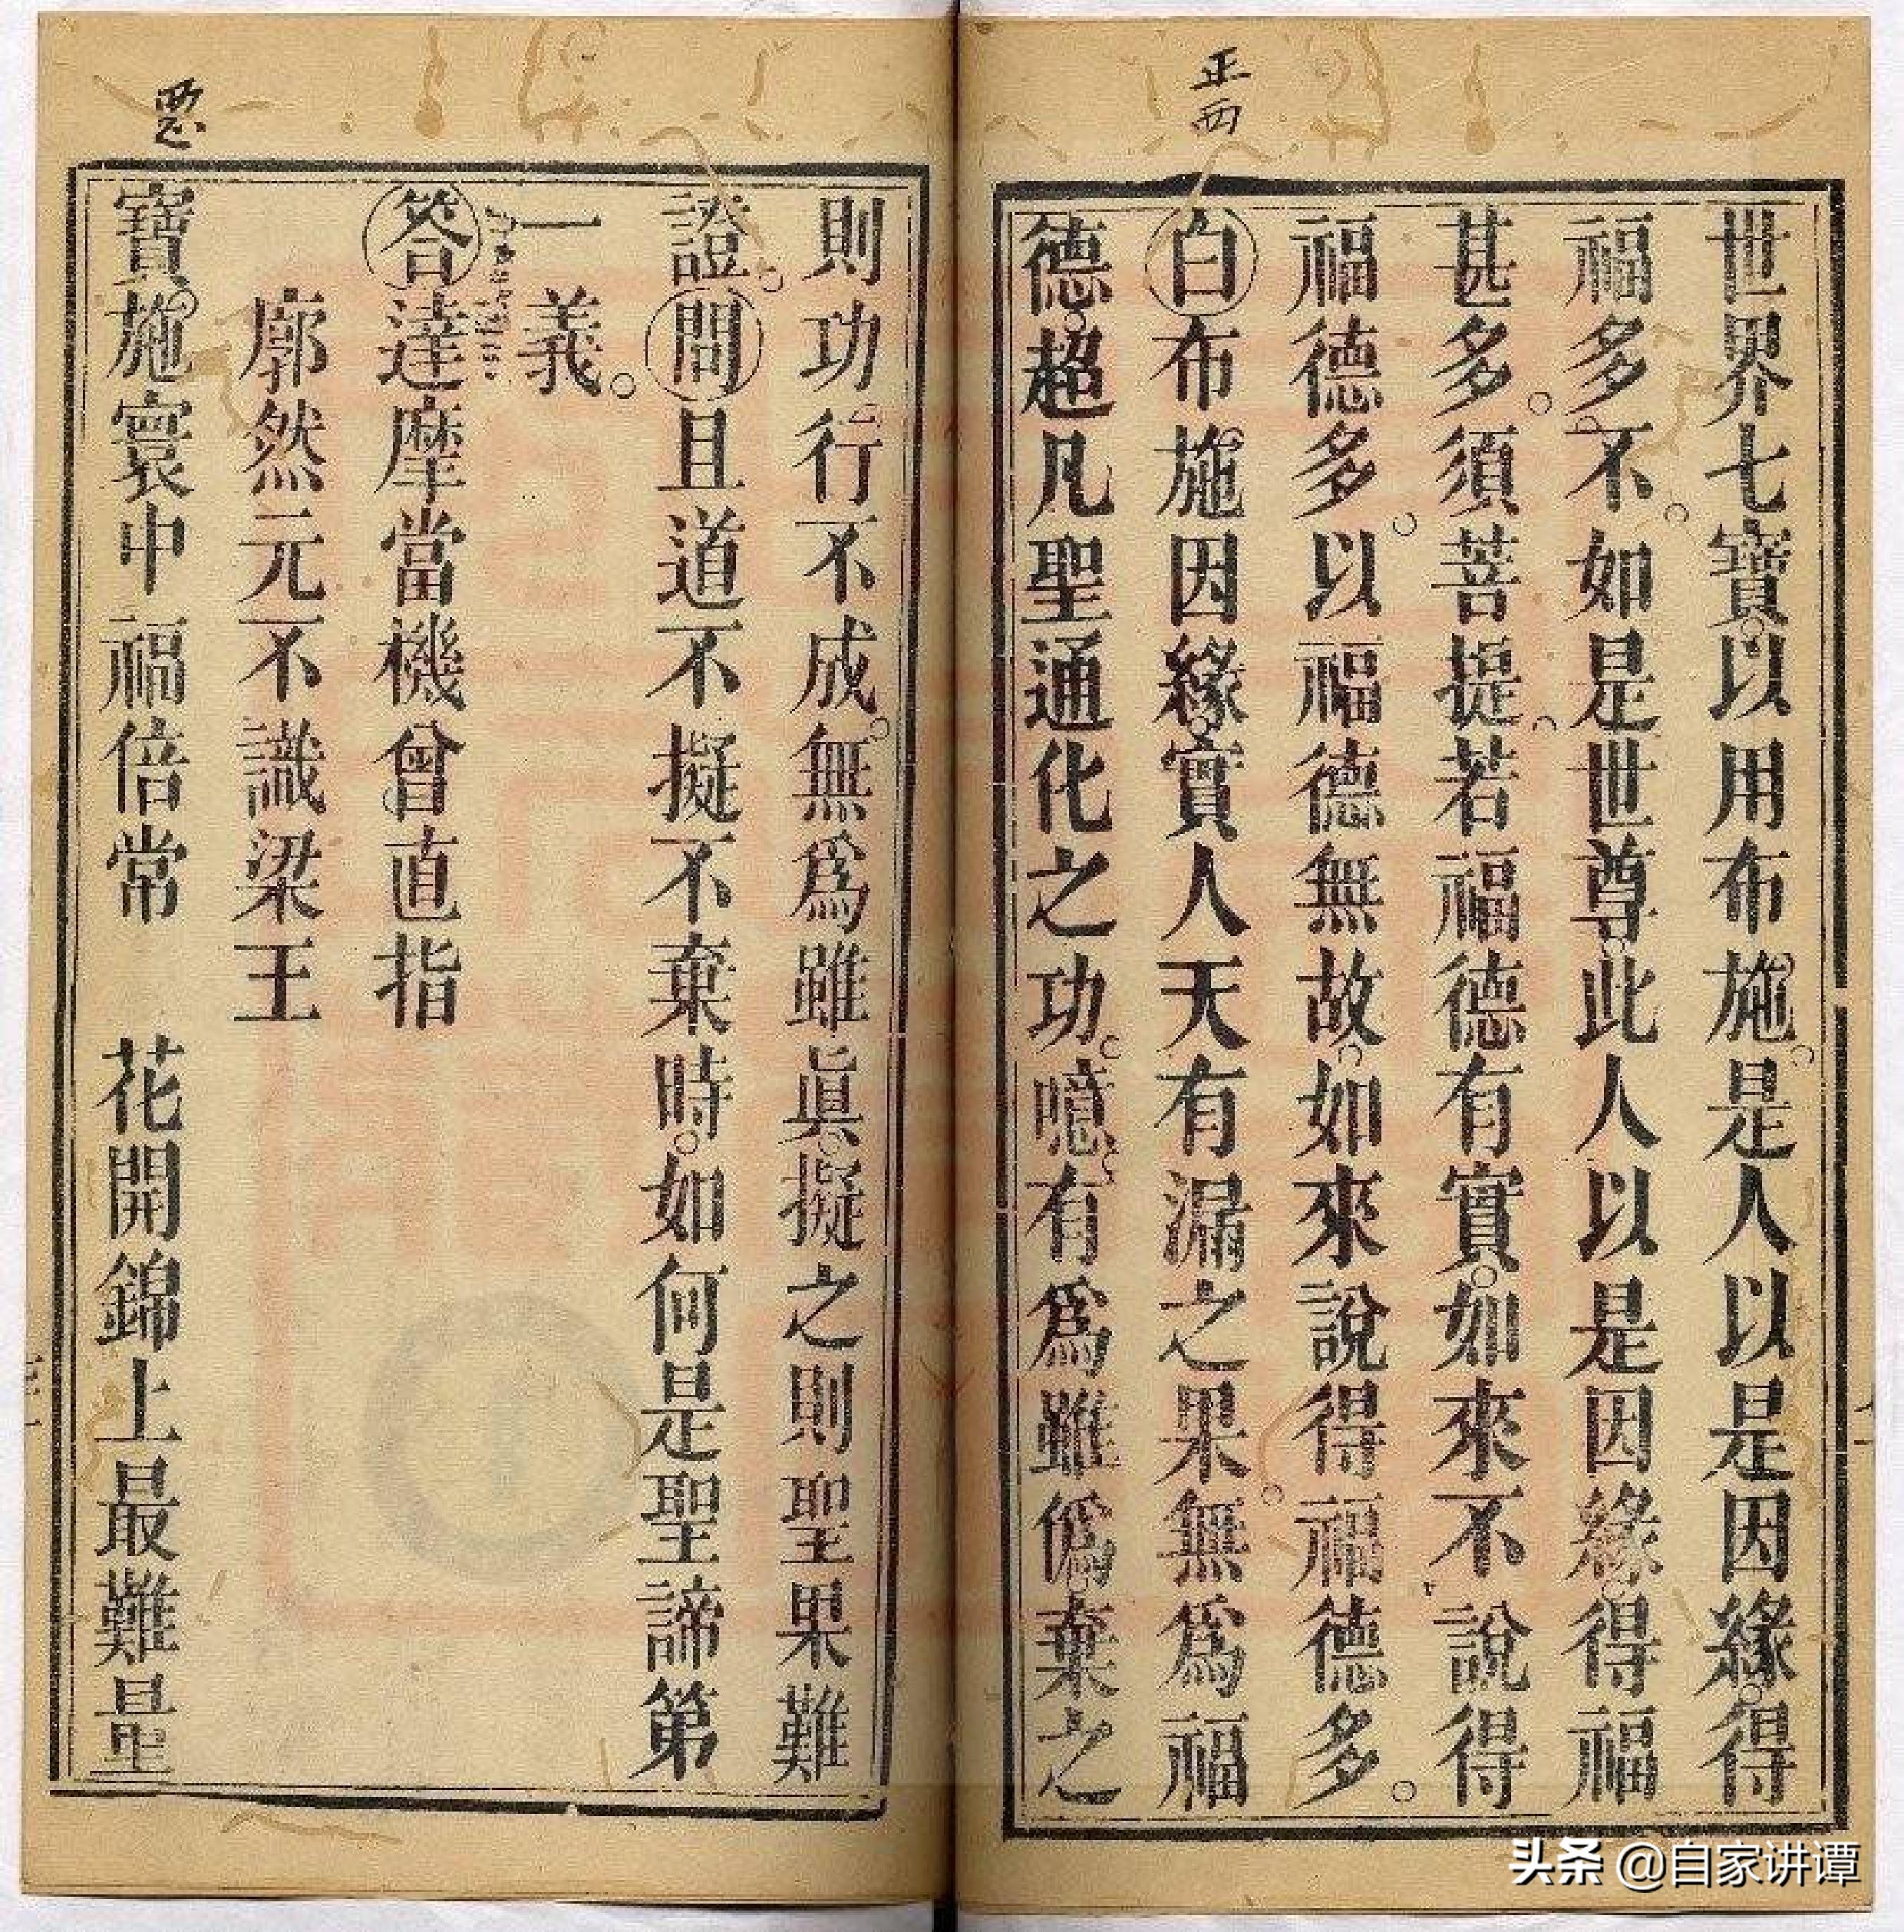 正西
世界七寶以用布施是人以是因緣得
福多不如是世尊此人以是因緣得福
甚多須菩提若福德有實如來不說得
福德多以福德無故如來說得福德多
白布施因緣實人天有漏之果無為福
德超凡聖通化之功噫有為雖偽棄之
則功行不成無為雖眞擬之則聖果難
證問且道不擬不棄時如何是聖諦第
一義
答達摩當機曾直指
廓然元不識梁王
寶施寰中福倍常 花開錦上最難量
头条 @自家讲谭